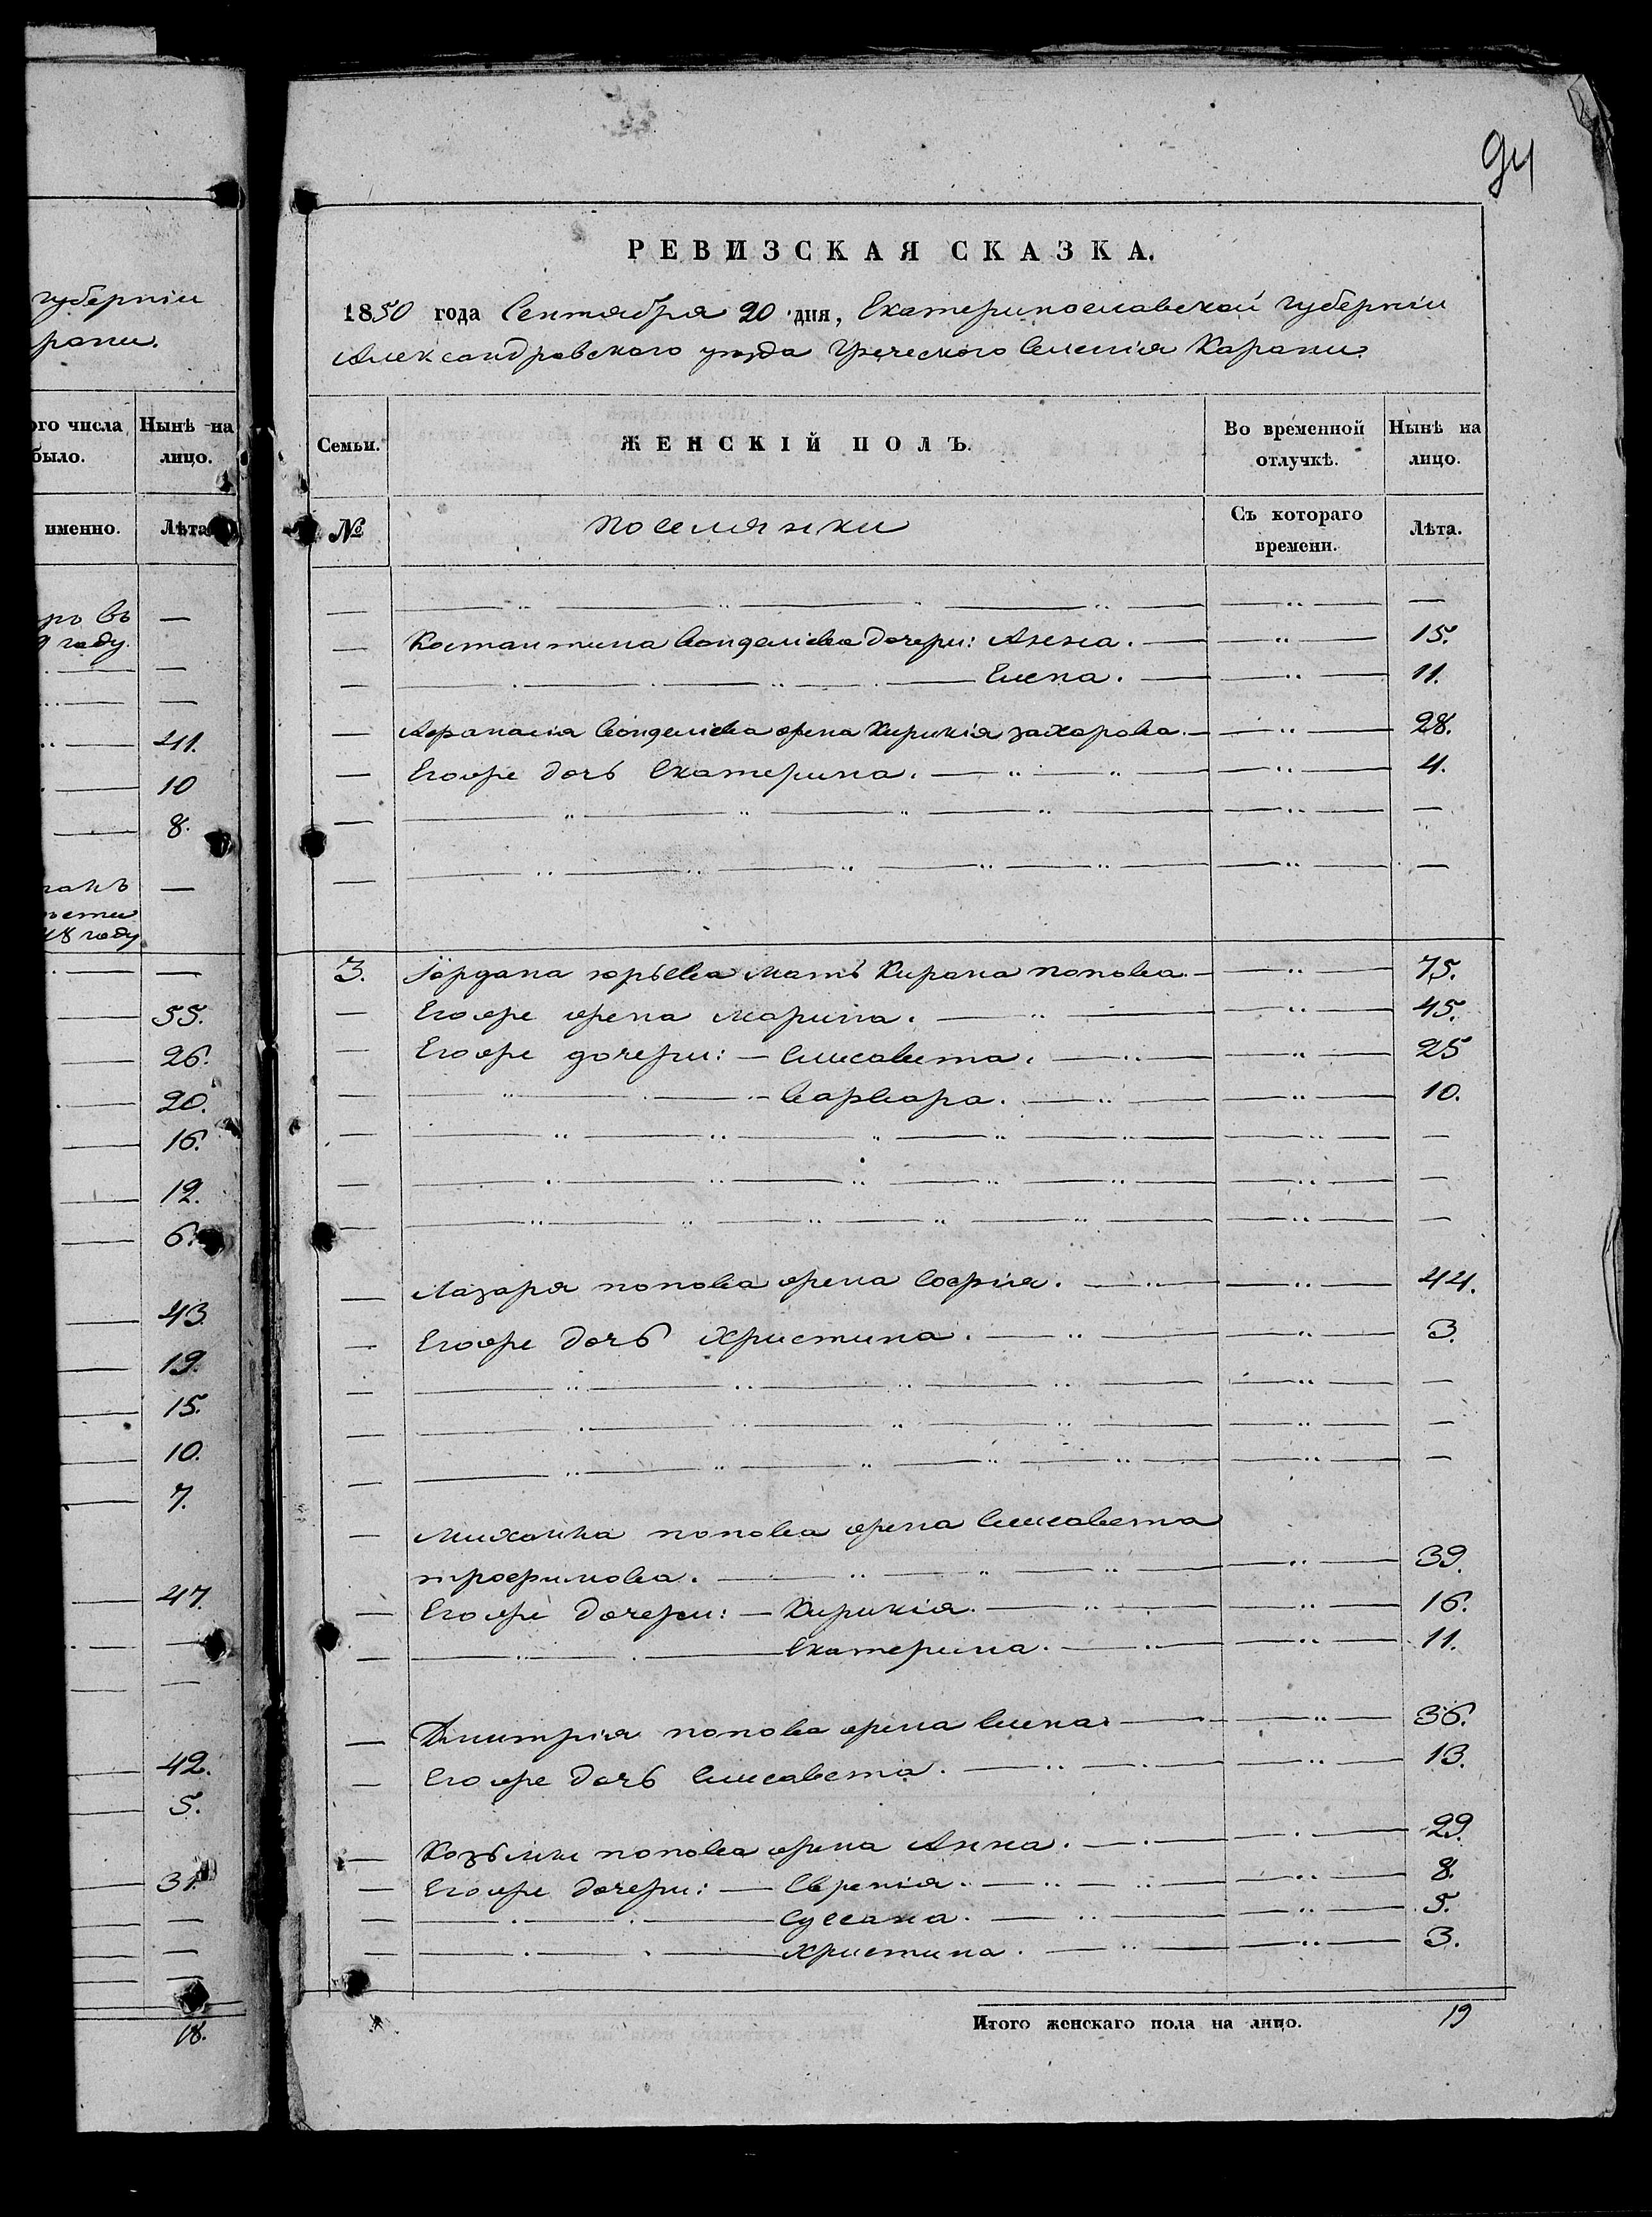 губерніи
рани.
ого числа
было.
Нынѣ на
лицо.
именно.
Лѣта
ръ въ
9 году.
—
—
—
41.
10
8.
—
48 году
—
55.
26.
20.
16.
12.
6.
43.
19.
15.
10.
7.
47.
—
—
42.
5.
31.
—
—
—
18.
94
РЕВИЗСКАЯ СКАЗКА.
1850 года Сентября 20 дня, Екатеринославской губерніи
Александровскаго уѣзда Греческого Селенія Карани.
Семьи.
ЖЕНСКІЙ ПОЛЪ.
Во временной
отлучкѣ.
Нынѣ на
лицо.
№
поселянки
Съ котораго
времени.
Лѣта.
— — — —
— Костантина дочери: Анна. — — 15.
— — Елена. — — 11.
— жена Кирикія захарова. — — 28.
— Егоже дочь Екатерина. — — 4.
— — — —
— — — —
3. юрьева мать Кирана попова. — — 75.
— Егоже жена Марина. — — 45.
— Егоже дочери: — Елисавета. — — 25
— — Варвара. — — 10.
— — — —
— — — —
— — — —
— Лазаря попова жена Софія. — — 44.
— Егоже дочь Христина. — — 3.
— — — —
— — — —
— — — —
— Михаила попова жена Елисавета
трофимова. — — 39.
— Егоже дочери: — Кирикія. — — 16.
— — Екатерина. — — 11.
— Дмитрія попова жена Елена. — — 36.
— Егоже дочь Елисавета. — — 13.
— Козьмы попова жена Анна. — — 29.
— Егоже дочери: — Евгенія. — — 8.
— — Суссана. — — 5.
— — Христина. — — 3.
Итого женскаго пола на лицо. 19